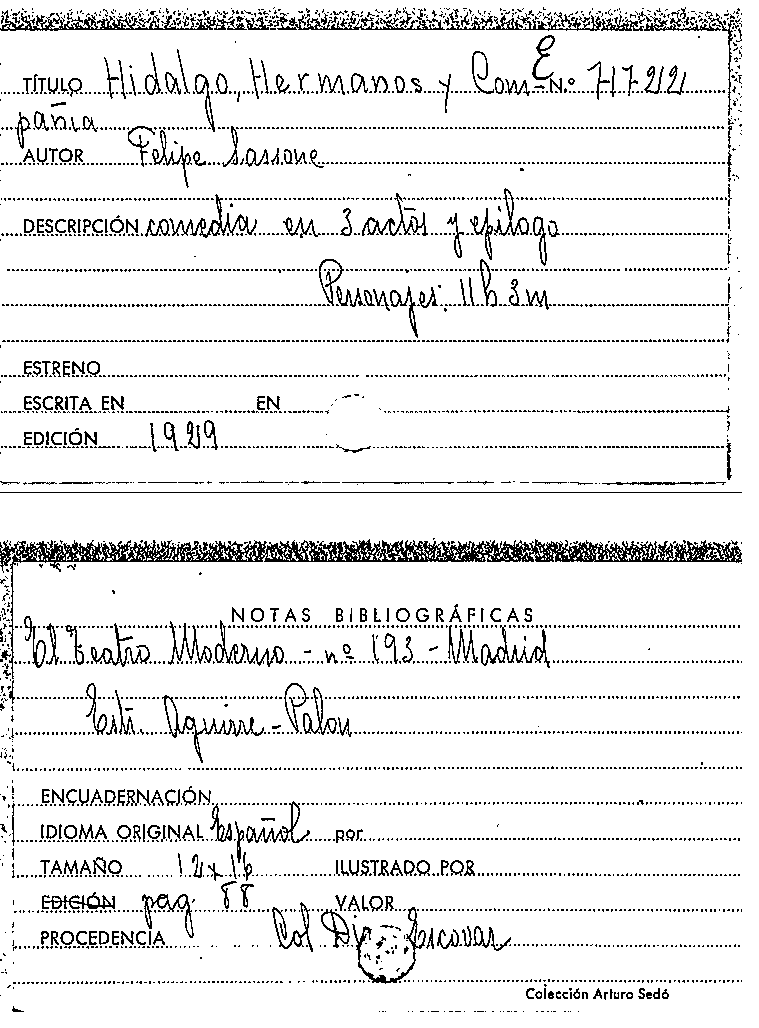 TÍTULO Hidalgo, Hermanos y Com- E N.º 717-22
pañia
AUTOR Felipe Sassone
DESCRIPCIÓN comedia en 3 actos y epílogo
Personajes: 11 h 3 m
ESTRENO
ESCRITA EN EN
EDICIÓN 1929
NOTAS BIBLIOGRÁFICAS
El Teatro Moderno - nº 193 - Madrid
Estr. Aguirre - Palou
ENCUADERNACIÓN
IDIOMA ORIGINAL Español por
TAMAÑO 12 x 16 ILUSTRADO POR
EDICIÓN pag. 88 VALOR
PROCEDENCIA Col Escovar
Colección Arturo Sedó